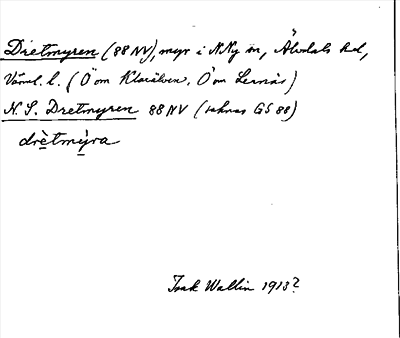 Dretmyren (88 NV), myr i N Ny sn, Älvdals hd,
Värml. l. (Ö om Klarälven, Ö om Lernäs)
N. S. Dretmyren 88 NV (saknas GS 88)
drètmy̖ra
Isak Wallin 1913?